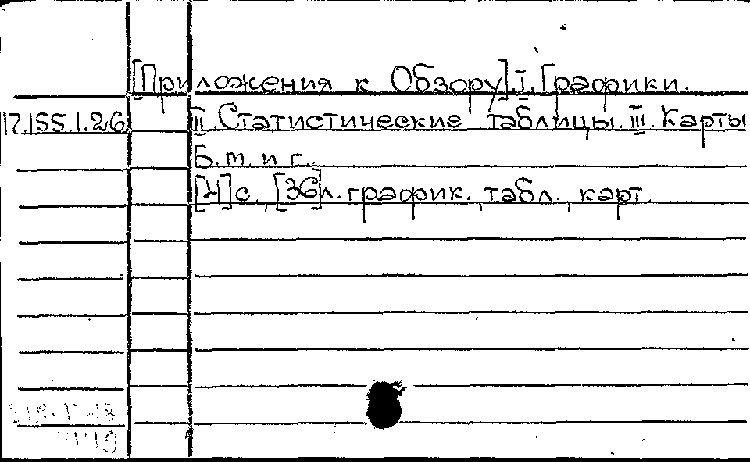 [Приложения к Обзору]. I. Графики.
17.155.1.26 II. Статистические таблицы. III. Карты
Б. м. и г.
[4] с., [36] л. график., табл., карт.